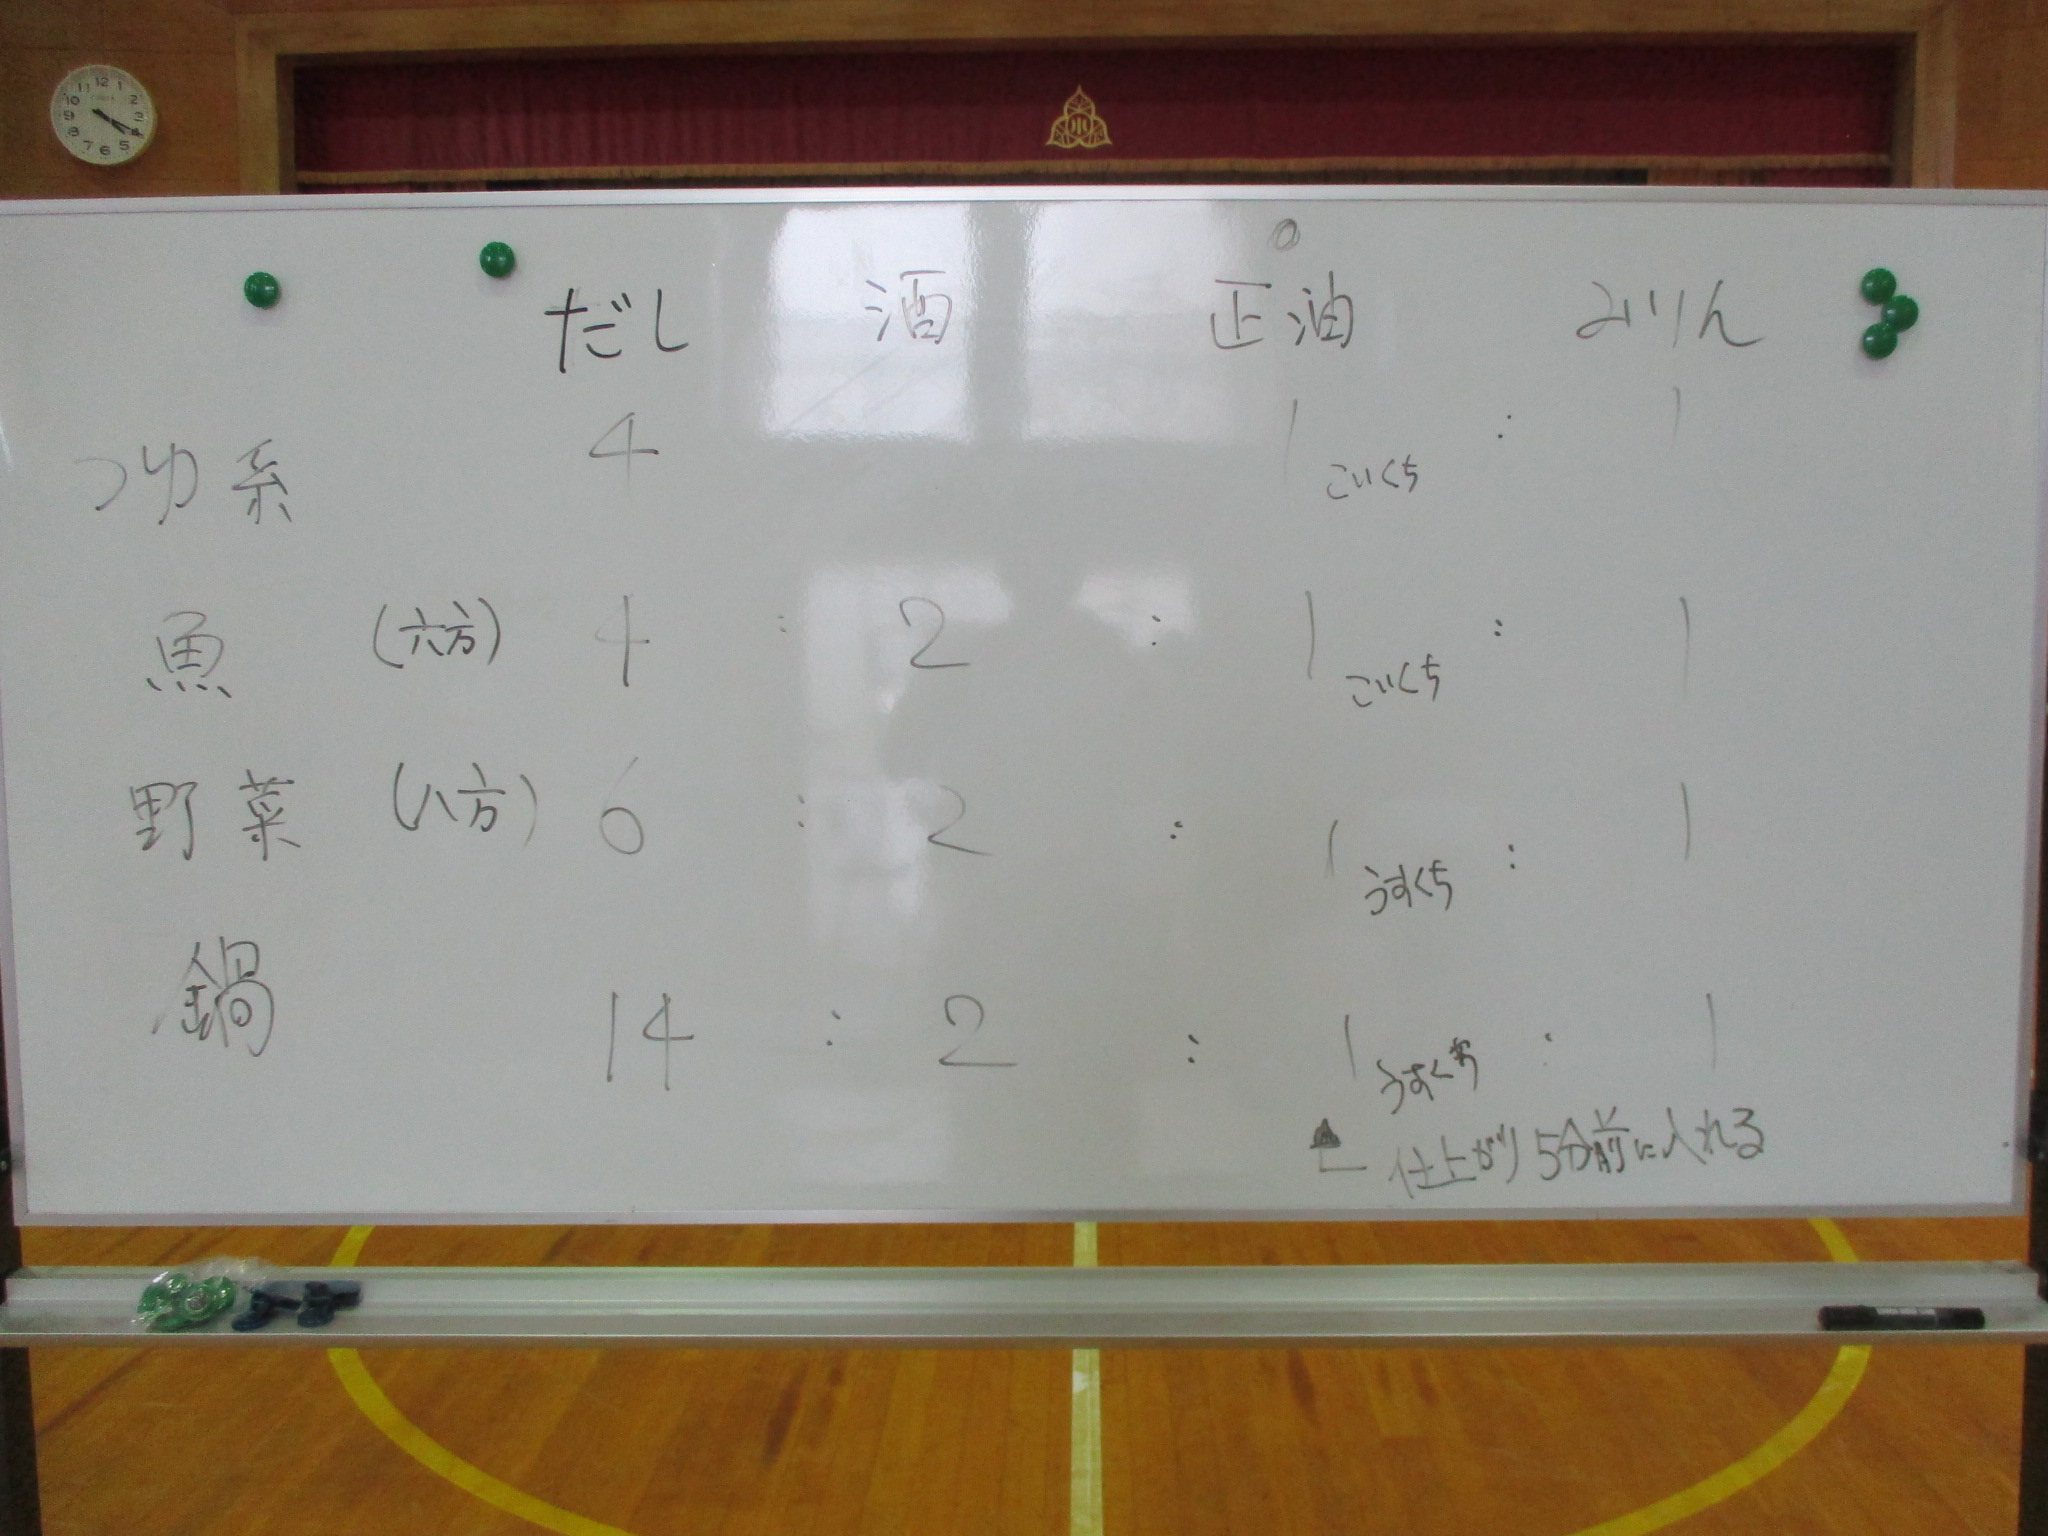 だし 酒 正油 みりん
つゆ系 4 1 こいくち : 1
魚 (六方) 4 : 2 : 1 こいくち : 1
野菜 (八方) 6 : 2 : 1 うすくち : 1
鍋 14 : 2 : 1 うすくち : 1
仕上がり5分前に入れる